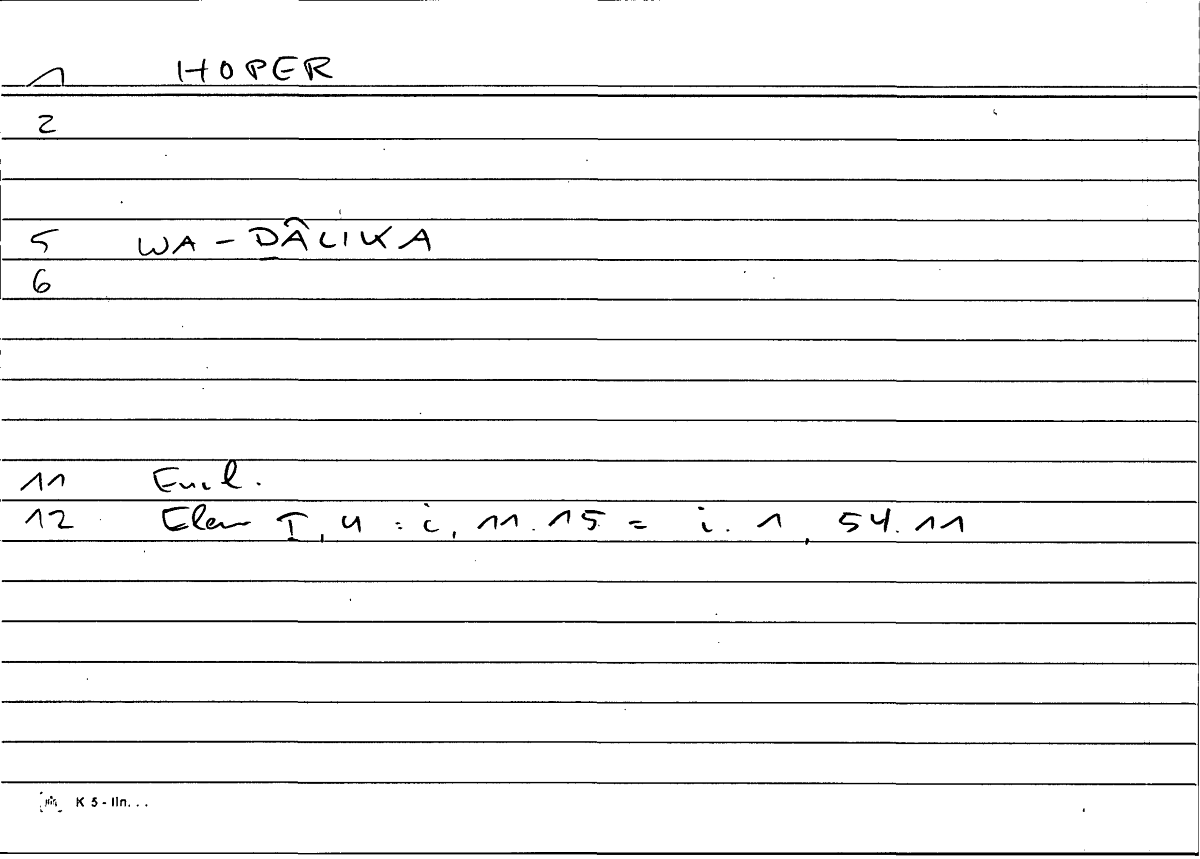 1 HOPER
2
5 WA-ḎÂLIKA
6
11 Eucl.
12 Elem I, 4 : i, 11.15 = i. 1, 54.11
K 5 - lln. . .